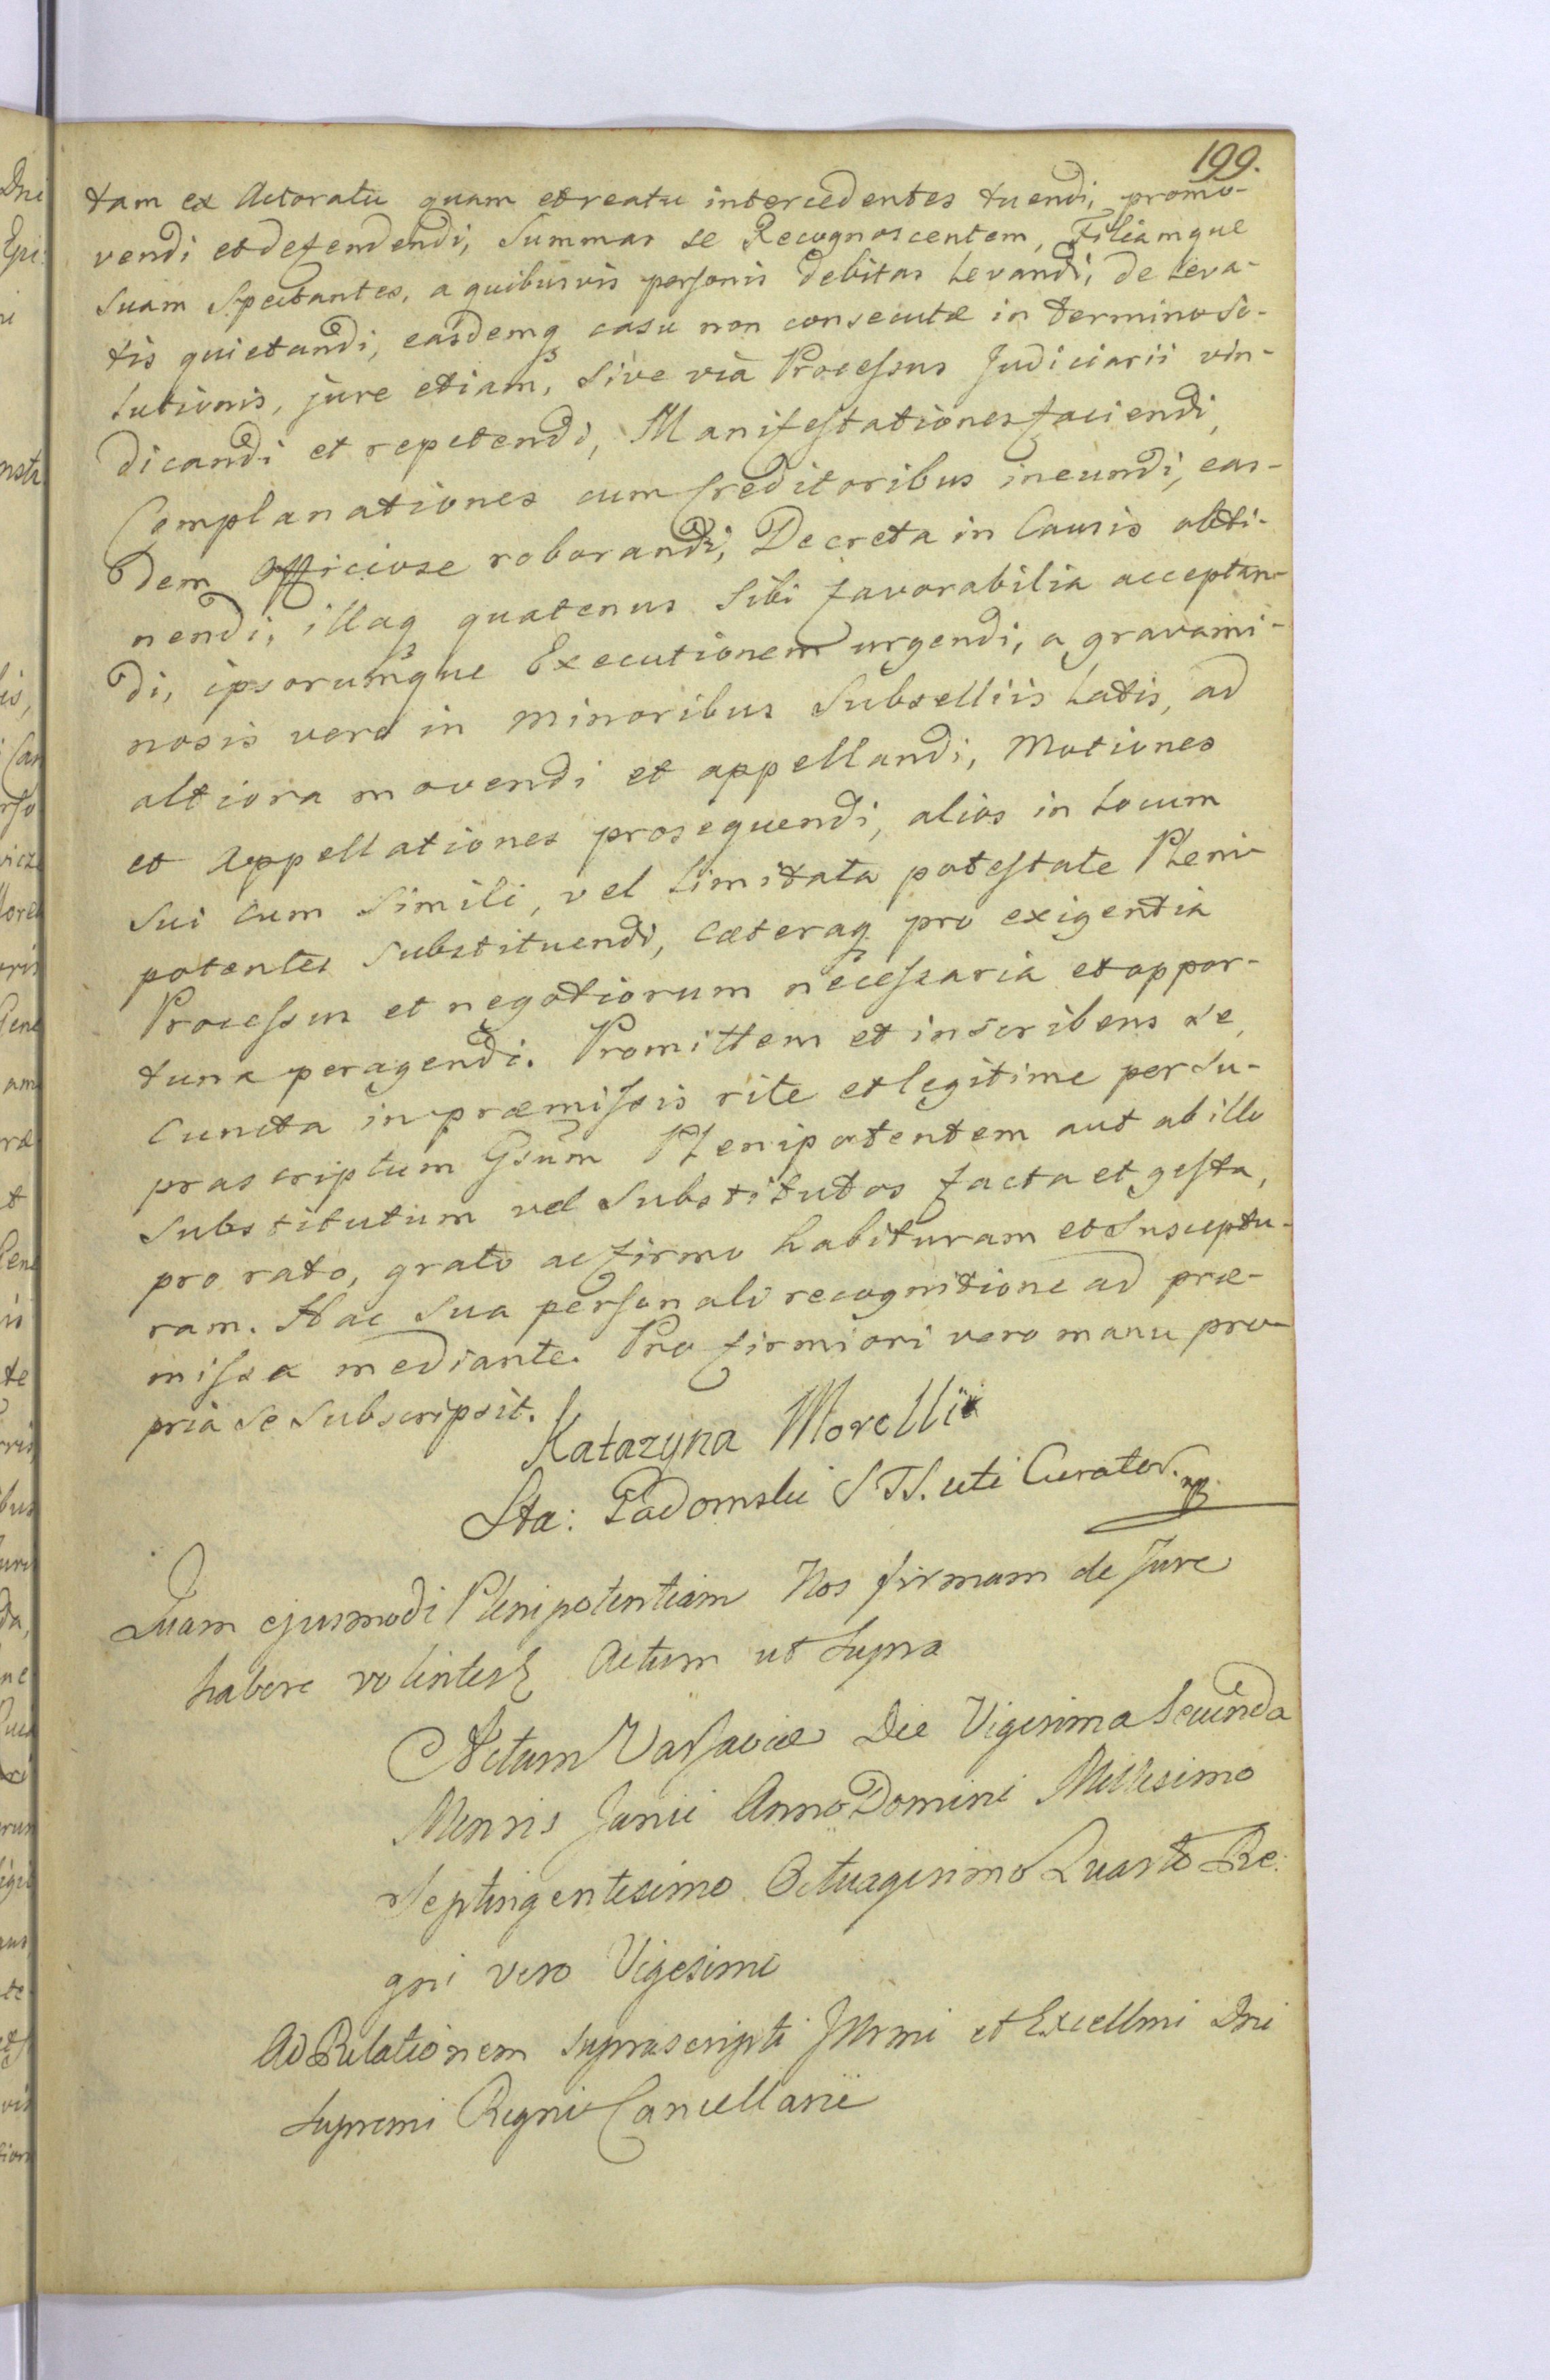 199.
tam ex Actoratu quam et reatu intercedentes tuendi, promo-
vendi et defendendi, Summas se Recognoscentem, Filiamque
suam Spectantes, a quibusvis personis debitas Levandi, de Leva-
tis quietandi, easdemq casu non consecutæ in termino So-
lutionis, jure etiam, Sive vià Processus Judiciarii vin-
dicandi et repetendi, Manifestationes faciendi,
Complanationes cum Creditoribus ineundi, eas-
dem Officiose roborandi, Decreta in Causis obti-
nendi, illaq quatenus Sibi favorabilia acceptan-
di, ipsorumque Executionem urgendi, a gravami-
nosis vero in minoribus Subselliis Latis, ad
altiora movendi et appellandi, Motiones
et Appellationes prosequendi, alios in Locum
Sui cum Simili, vel Limitata potestate Pleni-
potentes Substituendi, Cæteraq pro exigentia
Processus et negotiorum necessaria et oppor-
tuna peragendi. Promittens et inscribens se,
Cuncta in præmissis rite et legitime per Su-
prascriptum Gsum Plenipotentem aut ab illo
Substitutum vel Substitutos facta et gesta,
pro rato, grato ac firmo habituram et Susceptu-
ram. Hac Sua personali recognitione ad præ-
missa mediante. Pro firmiori vero manu pro-
prià Se Subscripsit.
Katazyna Morelli
Sta: Radomski S TS. uti Curator. mp.
Quam ejusmodi Plenipotentiam Nos firmam de Jure
habere volentes Actum ut Supra
Actum Varsaviæ Die Vigesima Secunda
Mensis Junii Anno Domini Millesimo
Septingentesimo Octuagesimo Quarto Re:
gni vero Vigesimo
Ad Relationem Suprascripti Jllrmi et Excellmi Dni
Supremi Regni Cancellarii